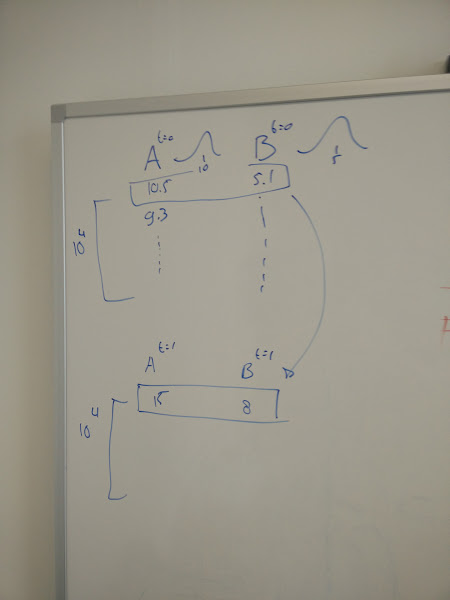 A t=0 10 B t=0 5
10.5 5.1
9.3
10^4
A t=1 B t=1
15 8
10^4